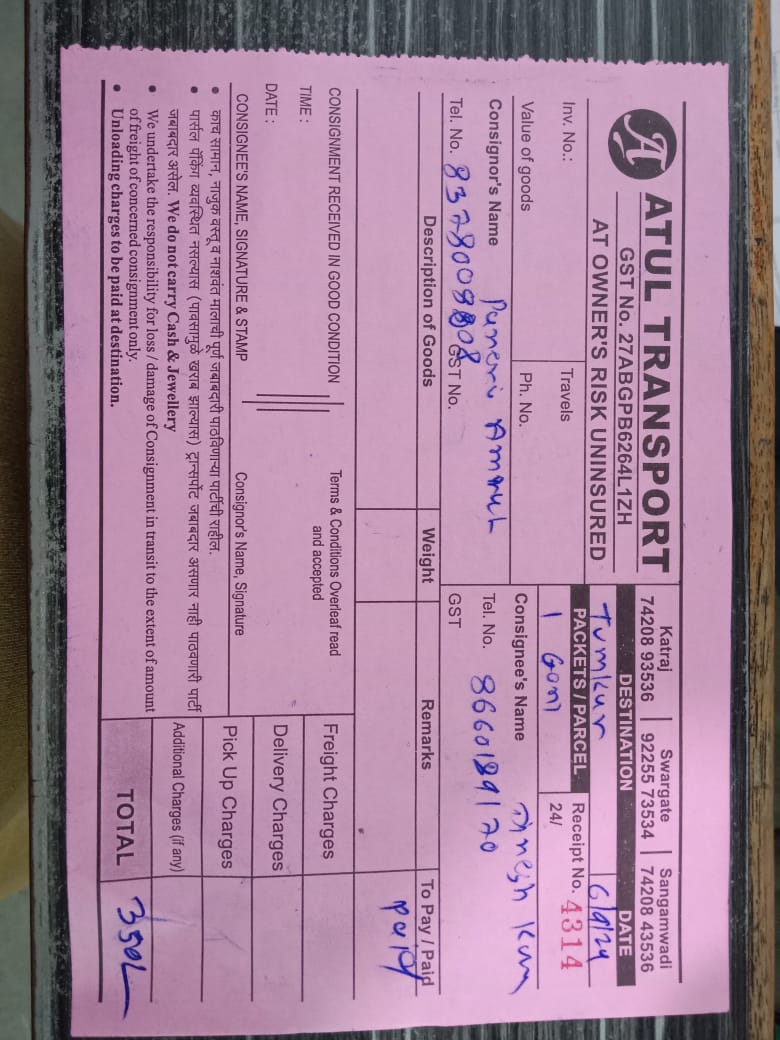 A ATUL TRANSPORT
GST No. 27ABGPB6264L1ZH
AT OWNER'S RISK UNINSURED
Katraj 74208 93536
Swargate 92255 73534
Sangamwadi 74208 43536
DESTINATION
DATE
Tumkur
6/9/24
Inv. No.:
Travels
PACKETS / PARCEL
Receipt No. 4314
1 Goni
24/
Value of goods
Ph. No.
Consignor's Name Puneri Amrut
Consignee's Name Dinesh Kum
Tel. No. GST No.
Tel. No. 8660189170
GST
Description of Goods
Weight
Remarks
To Pay / Paid
paid
CONSIGNMENT RECEIVED IN GOOD CONDITION
Terms & Conditions Overleaf read
and accepted
Freight Charges
TIME :
DATE :
Delivery Charges
CONSIGNEE'S NAME, SIGNATURE & STAMP
Consignor's Name, Signature
Pick Up Charges
• काच सामान, नाजुक वस्तू व नाशवंत मालाची पूर्ण जबाबदारी पाठविणाऱ्या पार्टीची राहील.
• पार्सल पॅकिंग व्यवस्थित नसल्यास (पावसामुळे खराब झाल्यास) ट्रान्सपोर्ट जबाबदार असणार नाही पाठवणारी पार्टी
जबाबदार असेल. We do not carry Cash & Jewellery
Additional Charges (if any)
• We undertake the responsibility for loss / damage of Consignment in transit to the extent of amount
of freight of concerned consignment only.
• Unloading charges to be paid at destination.
TOTAL
350/-